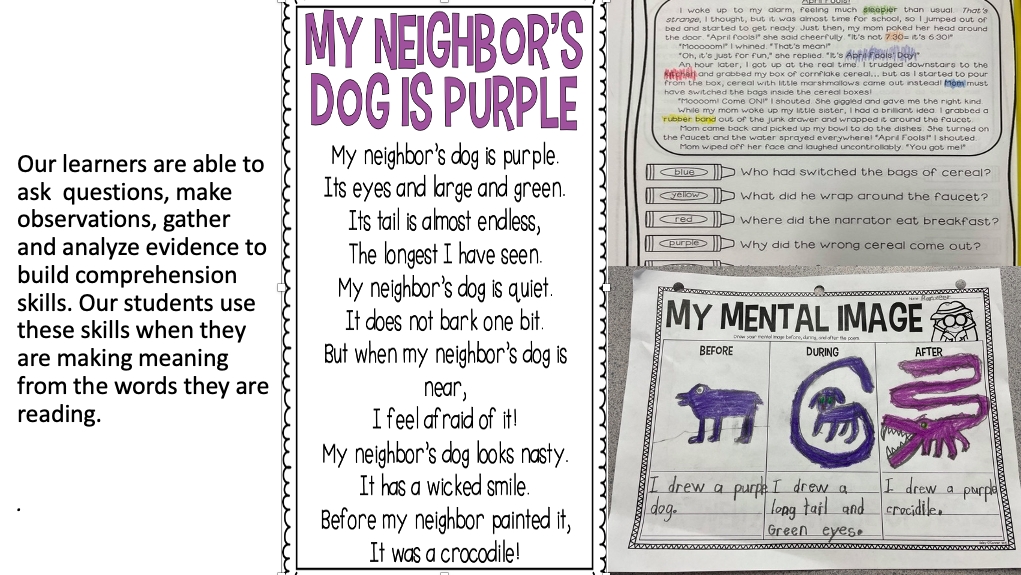 Our learners are able to
ask  questions, make
observations, gather
and analyze evidence to
build comprehension
skills. Our students use
these skills when they
are making meaning
from the words they are
reading.
.
MY NEIGHBOR'S
DOG IS PURPLE
My neighbor's dog is purple.
Its eyes and large and green.
Its tail is almost endless,
The longest I have seen.
My neighbor's dog is quiet.
It does not bark one bit.
But when my neighbor's dog is
near,
I feel afraid of it!
My neighbor's dog looks nasty.
It has a wicked smile.
Before my neighbor painted it,
It was a crocodile!
April Fools!
I woke up to my alarm, feeling much sleepier than usual. That's
strange, I thought, but it was almost time for school, so I jumped out of
bed and started to get ready. Just then, my mom poked her head around
the door. "April Fools!" she said cheerfully. "It's not 7:30- it's 6:30!"
"Mooooom!" I whined. "That's mean!"
"Oh, it's just for fun," she replied. "It's April Fools' Day!"
An hour later, I got up at the real time. I trudged downstairs to the
kitchen and grabbed my box of cornflake cereal... but as I started to pour
from the box, cereal with little marshmallows came out instead! Mom must
have switched the bags inside the cereal boxes!
"Moooom! Come ON!" I shouted. She giggled and gave me the right kind.
While my mom woke up my little sister, I had a brilliant idea. I grabbed a
rubber band out of the junk drawer and wrapped it around the faucet.
Mom came back and picked up my bowl to do the dishes. She turned on
the faucet and the water sprayed everywhere! "April Fools!" I shouted.
Mom wiped off her face and laughed uncontrollably. "You got me!"
blue Who had switched the bags of cereal?
yellow What did he wrap around the faucet?
red Where did the narrator eat breakfast?
purple Why did the wrong cereal come out?
Name:
MY MENTAL IMAGE
Draw your mental image before, during, and after the poem.
BEFORE DURING AFTER
I drew a purple
dog.
I drew a
long tail and
Green eyes.
I drew a purple
crocidile.